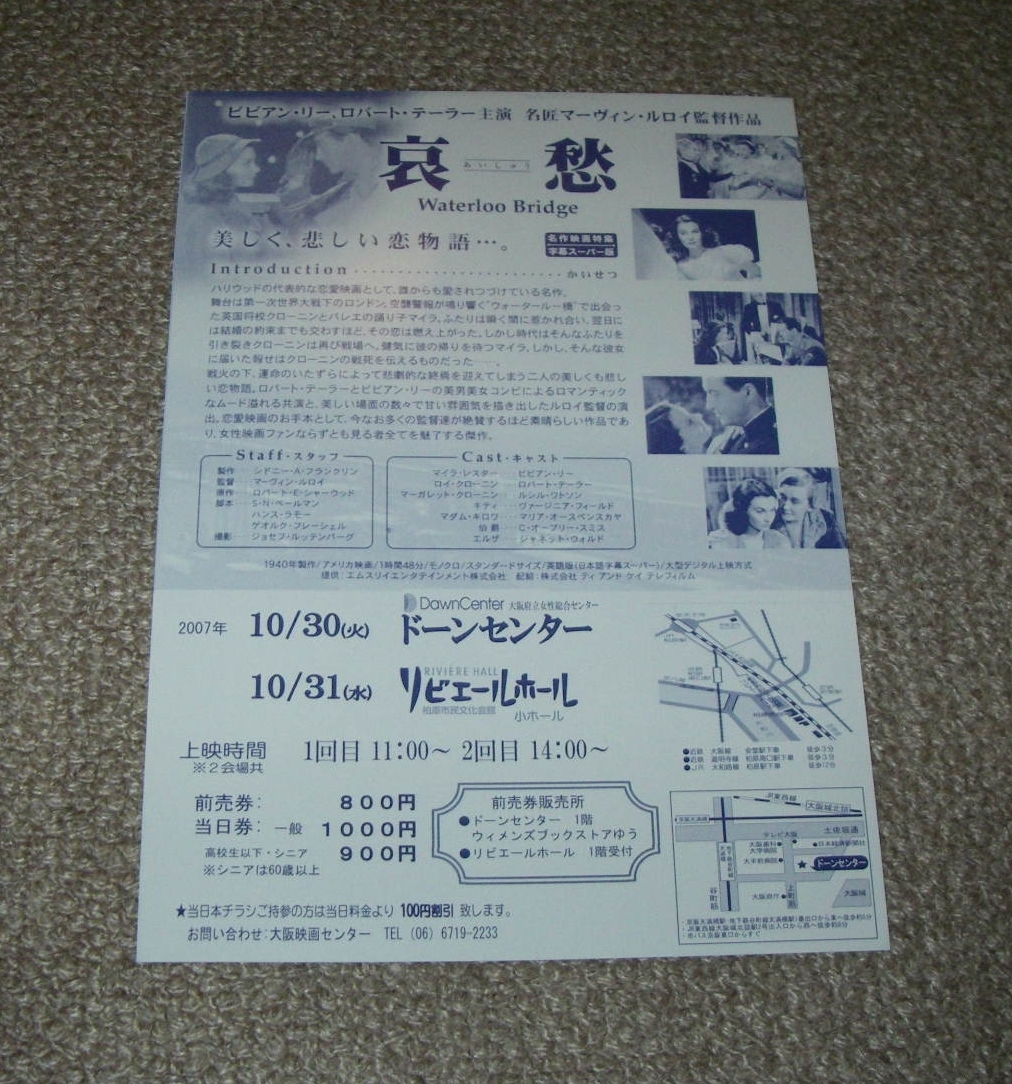 ビビアン・リー、ロバート・テーラー主演 名匠マーヴィン・ルロイ監督作品
哀愁
あいしゅう
Waterloo Bridge
美しく、悲しい恋物語…。
名作映画特集
字幕スーパー版
Introduction かいせつ
ハリウッドの代表的な恋愛映画として、誰からも愛されつづけている名作。
舞台は第一次世界大戦下のロンドン。空襲警報が鳴り響く"ウォータールー橋"で出会っ
た英国将校クローニンとバレエの踊り子マイラ。ふたりは瞬く間に惹かれ合い、翌日に
は結婚の約束までも交わすほど、その恋は燃え上がった。しかし時代はそんなふたりを
引き裂きクローニンは再び戦場へ。健気に彼の帰りを待つマイラ。しかし、そんな彼女
に届いた報せはクローニンの戦死を伝えるものだった……。
戦火の下、運命のいたずらによって悲劇的な終焉を迎えてしまう二人の美しくも悲し
い恋物語。ロバート・テーラーとビビアン・リーの美男美女コンビによるロマンティック
なムード溢れる共演と、美しい場面の数々で甘い雰囲気を描き出したルロイ監督の演
出。恋愛映画のお手本として、今なお多くの監督達が絶賛するほど素晴らしい作品であ
り、女性映画ファンならずとも見る者全てを魅了する傑作。
Staff・スタッフ
製作…シドニー・A・フランクリン
監督…マーヴィン・ルロイ
原作…ロバート・E・シャーウッド
脚本…S・N・ベールマン
ハンス・ラモー
ゲオルク・フレーシェル
撮影…ジョセフ・ルッテンバーグ
Cast・キャスト
マイラ・レスター…ビビアン・リー
ロイ・クローニン…ロバート・テーラー
マーガレット・クローニン…ルシル・ワトソン
キティ…ヴァージニア・フィールド
マダム・キロワ…マリア・オースペンスカヤ
伯爵…C・オーブリー・スミス
エルザ…ジャネット・ウォルド
1940年製作/アメリカ映画/1時間48分/モノクロ/スタンダードサイズ/英語版(日本語字幕スーパー)/大型デジタル上映方式
提供：エムスリイエンタテインメント株式会社 配給：株式会社 ティ アンド ケイ テレフィルム
DawnCenter 大阪府立女性総合センター
2007年 10/30(火) ドーンセンター
RIVIERE HALL
10/31(水) リビエールホール
柏原市民文化会館 小ホール
上映時間 1回目 11:00～ 2回目 14:00～
※2会場共
前売券： 800円
当日券： 一般 1000円
高校生以下・シニア 900円
※シニアは60歳以上
前売券販売所
●ドーンセンター 1階
ウィメンズブックストアゆう
●リビエールホール 1階受付
★当日本チラシご持参の方は当日料金より 100円割引 致します。
お問い合わせ：大阪映画センター TEL (06) 6719-2233
●近鉄 大阪線 安堂駅下車 徒歩3分
●近鉄 道明寺線 柏原南口駅下車 徒歩3分
●JR 大和路線 柏原駅下車
JR東西線
大阪城北詰
京阪天満橋
土佐堀通
テレビ大阪
日本経済新聞社
大手前病院
★ドーンセンター
大阪府庁
上町筋
谷町筋
大阪城